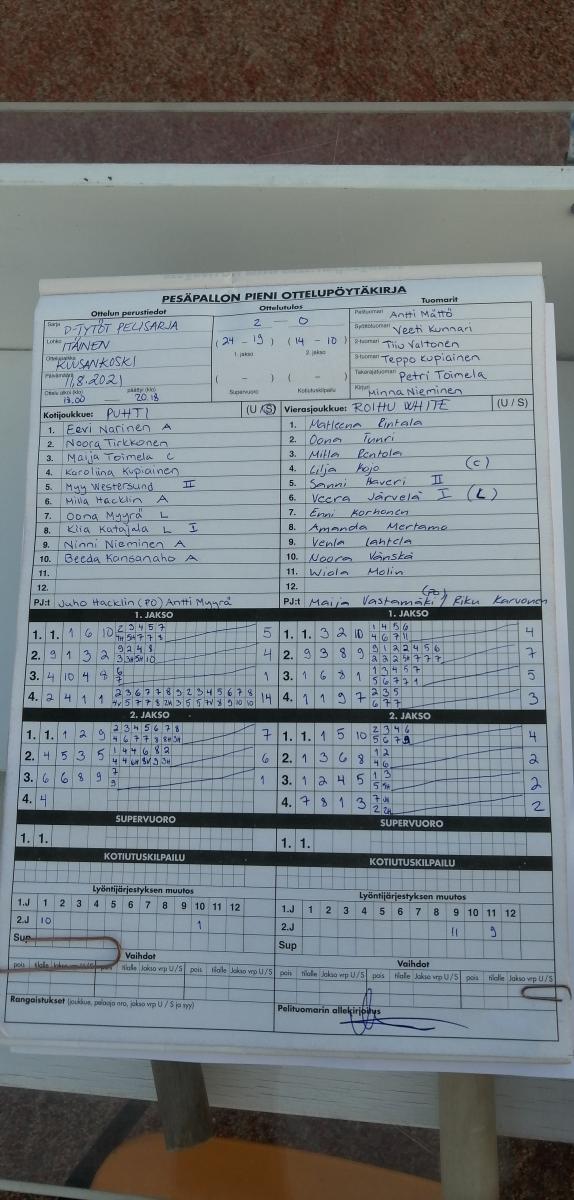 PESÄPALLON PIENI OTTELUPÖYTÄKIRJA
Ottelun perustiedot
Ottelutulos
Tuomarit
Sarja D-TYTÖT PELISARJA
2 - 0
Pelituomari Antti Mättö
Lohko ITÄINEN
(24 - 19) (14 - 10)
Syöttötuomari Veeti Kunnari
1. jakso 2. jakso
2-tuomari Tiiu Valtonen
Ottelupaikka KUUSANKOSKI
3-tuomari Teppo Kupiainen
Päivämäärä 11.8.2021
( - ) ( - )
Takarajatuomari Petri Toimela
Ottelu alkoi (klo) 18.00 päättyi (klo) 20.18
Supervuoro Kotiutuskilpailu
Kirjuri Minna Nieminen
Kotijoukkue: PUHTI (U / S)
Vierasjoukkue: ROIHU WHITE (U / S)
1. Eevi Narinen A
1. Matleena Pintala
2. Noora Tirkkonen
2. Oona Tuuri
3. Maija Toimela C
3. Milla Pentola
4. Karoliina Kupiainen
4. Lilja Kojo (C)
5. Myy Westersund II
5. Sanni Haveri II
6. Milla Hacklin A
6. Veera Järvelä I (L)
7. Oona Myyrä L
7. Enni Korhonen
8. Klia Katajala L I
8. Amanda Mertamo
9. Ninni Nieminen A
9. Venla Lahtela
10. Beeda Kansanaho A
10. Noora Vänskä
11.
11. Wiola Molin
12.
12.
PJ:t Juho Hacklin (PO) Antti Myyrä
PJ:t Maija Vastamäki (PO) / Riku Karvonen
1. JAKSO
1. JAKSO
1. 1. 1 6 10 2 3 4 5 7 5
1. 1. 3 2 10 1 4 5 6 4
4 6 7 11
2. 9 1 3 2 9 2 4 8 4
2. 9 3 8 9 9 1 2 2 4 5 6 7
3. 4 10 4 8 6 1
7
3. 1 6 8 1 1 3 4 5 7 5
5 6 7 7 1
4. 2 4 1 1 2 3 6 7 7 8 9 2 3 4 5 6 7 8 14
4. 1 1 9 7 2 3 5 3
6 7 7
2. JAKSO
2. JAKSO
1. 1. 1 2 9 2 3 4 5 6 7 8 7
1. 1. 1 5 10 2 3 4 6 4
2. 4 5 3 5 1 4 4 6 8 2 6
2. 1 3 6 8 1 2 2
4 6
3. 6 6 8 9 7 1
9
3. 1 2 4 5 1 3 2
4. 4
4. 7 8 1 3 2
SUPERVUORO
SUPERVUORO
1. 1.
1. 1.
KOTIUTUSKILPAILU
KOTIUTUSKILPAILU
Lyöntijärjestyksen muutos
Lyöntijärjestyksen muutos
1.J 1 2 3 4 5 6 7 8 9 10 11 12
1.J 1 2 3 4 5 6 7 8 9 10 11 12
2.J 10 1
2.J 11 9
Sup
Sup
Vaihdot
Vaihdot
pois tilalle Jakso vrp U / S pois tilalle Jakso vrp U / S pois tilalle Jakso vrp U / S
pois tilalle Jakso vrp U / S pois tilalle Jakso vrp U / S pois tilalle Jakso vrp U / S
Rangaistukset (joukkue, pelaaja nro, jakso vrp U / S ja syy)
Pelituomarin allekirjoitus